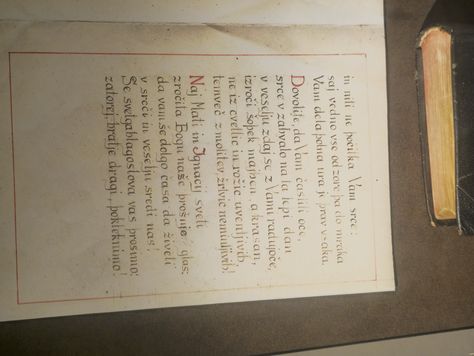 in niti ne počitka Vam srce:
saj vedno vse od zore pa do mraka
Vam dela polna ura je prav vsaka.
Dovolite, da Vam častiti oče,
srce v zahvalo na ta lepi dan
v veselju zdaj se z Vami radujoče,
izroči šopek majhen, a krasan,
ne iz cvetlic in rožic uvenljivih,
temveč z molitev, žrtvic neminljivih!
Naj Mati in Ignacij sveti
zročita Bogu naše prošnje glas:
da vam še dolgo časa da živeti
v sreči in veselju sredi nas!
Še svet'ga blagoslova vas prosimo:
zatorej, bratje dragi, pokleknimo!